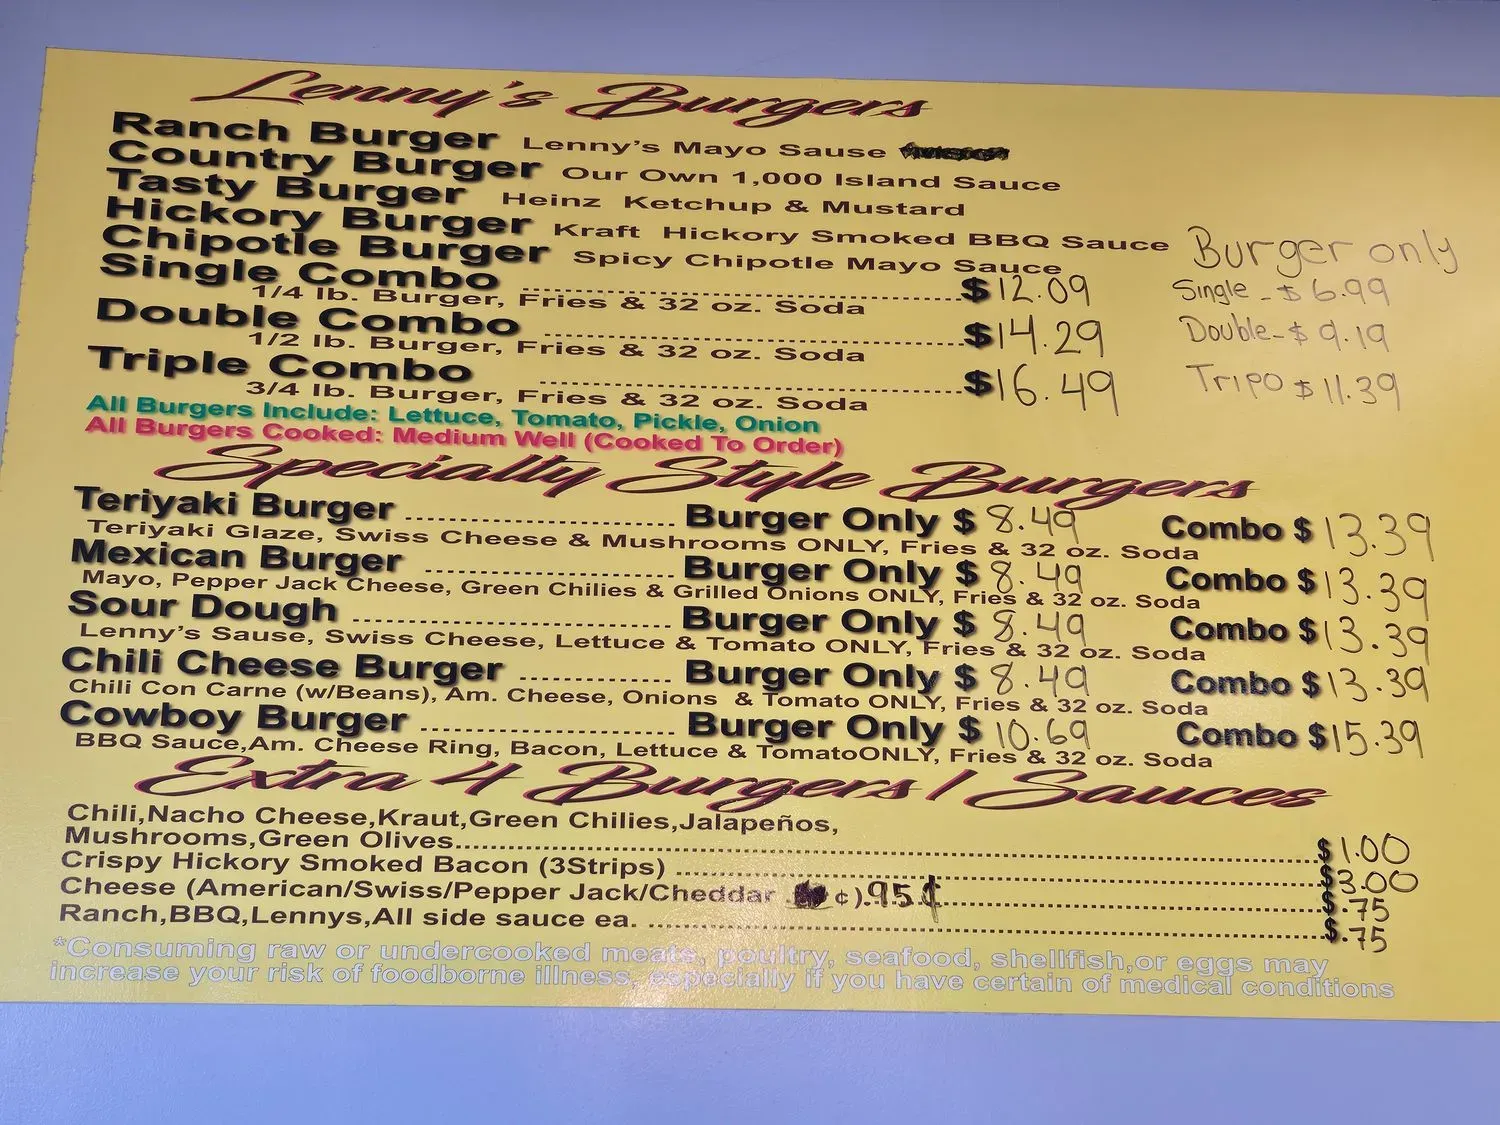 Lenny's Burgers
Ranch Burger Lenny's Mayo Sause
Country Burger Our Own 1,000 Island Sauce
Tasty Burger Heinz Ketchup & Mustard
Hickory Burger Kraft Hickory Smoked BBQ Sauce
Chipotle Burger Spicy Chipotle Mayo Sauce
Burger only
Single Combo ........................ $12.09
1/4 lb. Burger, Fries & 32 oz. Soda
Single - $6.99
Double Combo ........................ $14.29
1/2 lb. Burger, Fries & 32 oz. Soda
Double - $9.19
Triple Combo ........................ $16.49
3/4 lb. Burger, Fries & 32 oz. Soda
Tripo $11.39
All Burgers Include: Lettuce, Tomato, Pickle, Onion
All Burgers Cooked: Medium Well (Cooked To Order)
Specialty Style Burgers
Teriyaki Burger ........................ Burger Only $8.49 Combo $13.39
Teriyaki Glaze, Swiss Cheese & Mushrooms ONLY, Fries & 32 oz. Soda
Mexican Burger ........................ Burger Only $8.49 Combo $13.39
Mayo, Pepper Jack Cheese, Green Chilies & Grilled Onions ONLY, Fries & 32 oz. Soda
Sour Dough ........................ Burger Only $8.49 Combo $13.39
Lenny's Sause, Swiss Cheese, Lettuce & Tomato ONLY, Fries & 32 oz. Soda
Chili Cheese Burger ........................ Burger Only $8.49 Combo $13.39
Chili Con Carne (w/Beans), Am. Cheese, Onions & Tomato ONLY, Fries & 32 oz. Soda
Cowboy Burger ........................ Burger Only $10.69 Combo $15.39
BBQ Sauce,Am. Cheese Ring, Bacon, Lettuce & TomatoONLY, Fries & 32 oz. Soda
Extra 4 Burgers / Sauces
Chili,Nacho Cheese,Kraut,Green Chilies,Jalapeños,
Mushrooms,Green Olives........................ $1.00
Crispy Hickory Smoked Bacon (3Strips) ........................ $3.00
Cheese (American/Swiss/Pepper Jack/Cheddar ¢).95¢........................ $.75
Ranch,BBQ,Lennys,All side sauce ea. ........................ $.75
*Consuming raw or undercooked meats, poultry, seafood, shellfish,or eggs may
increase your risk of foodborne illness, especially if you have certain of medical conditions